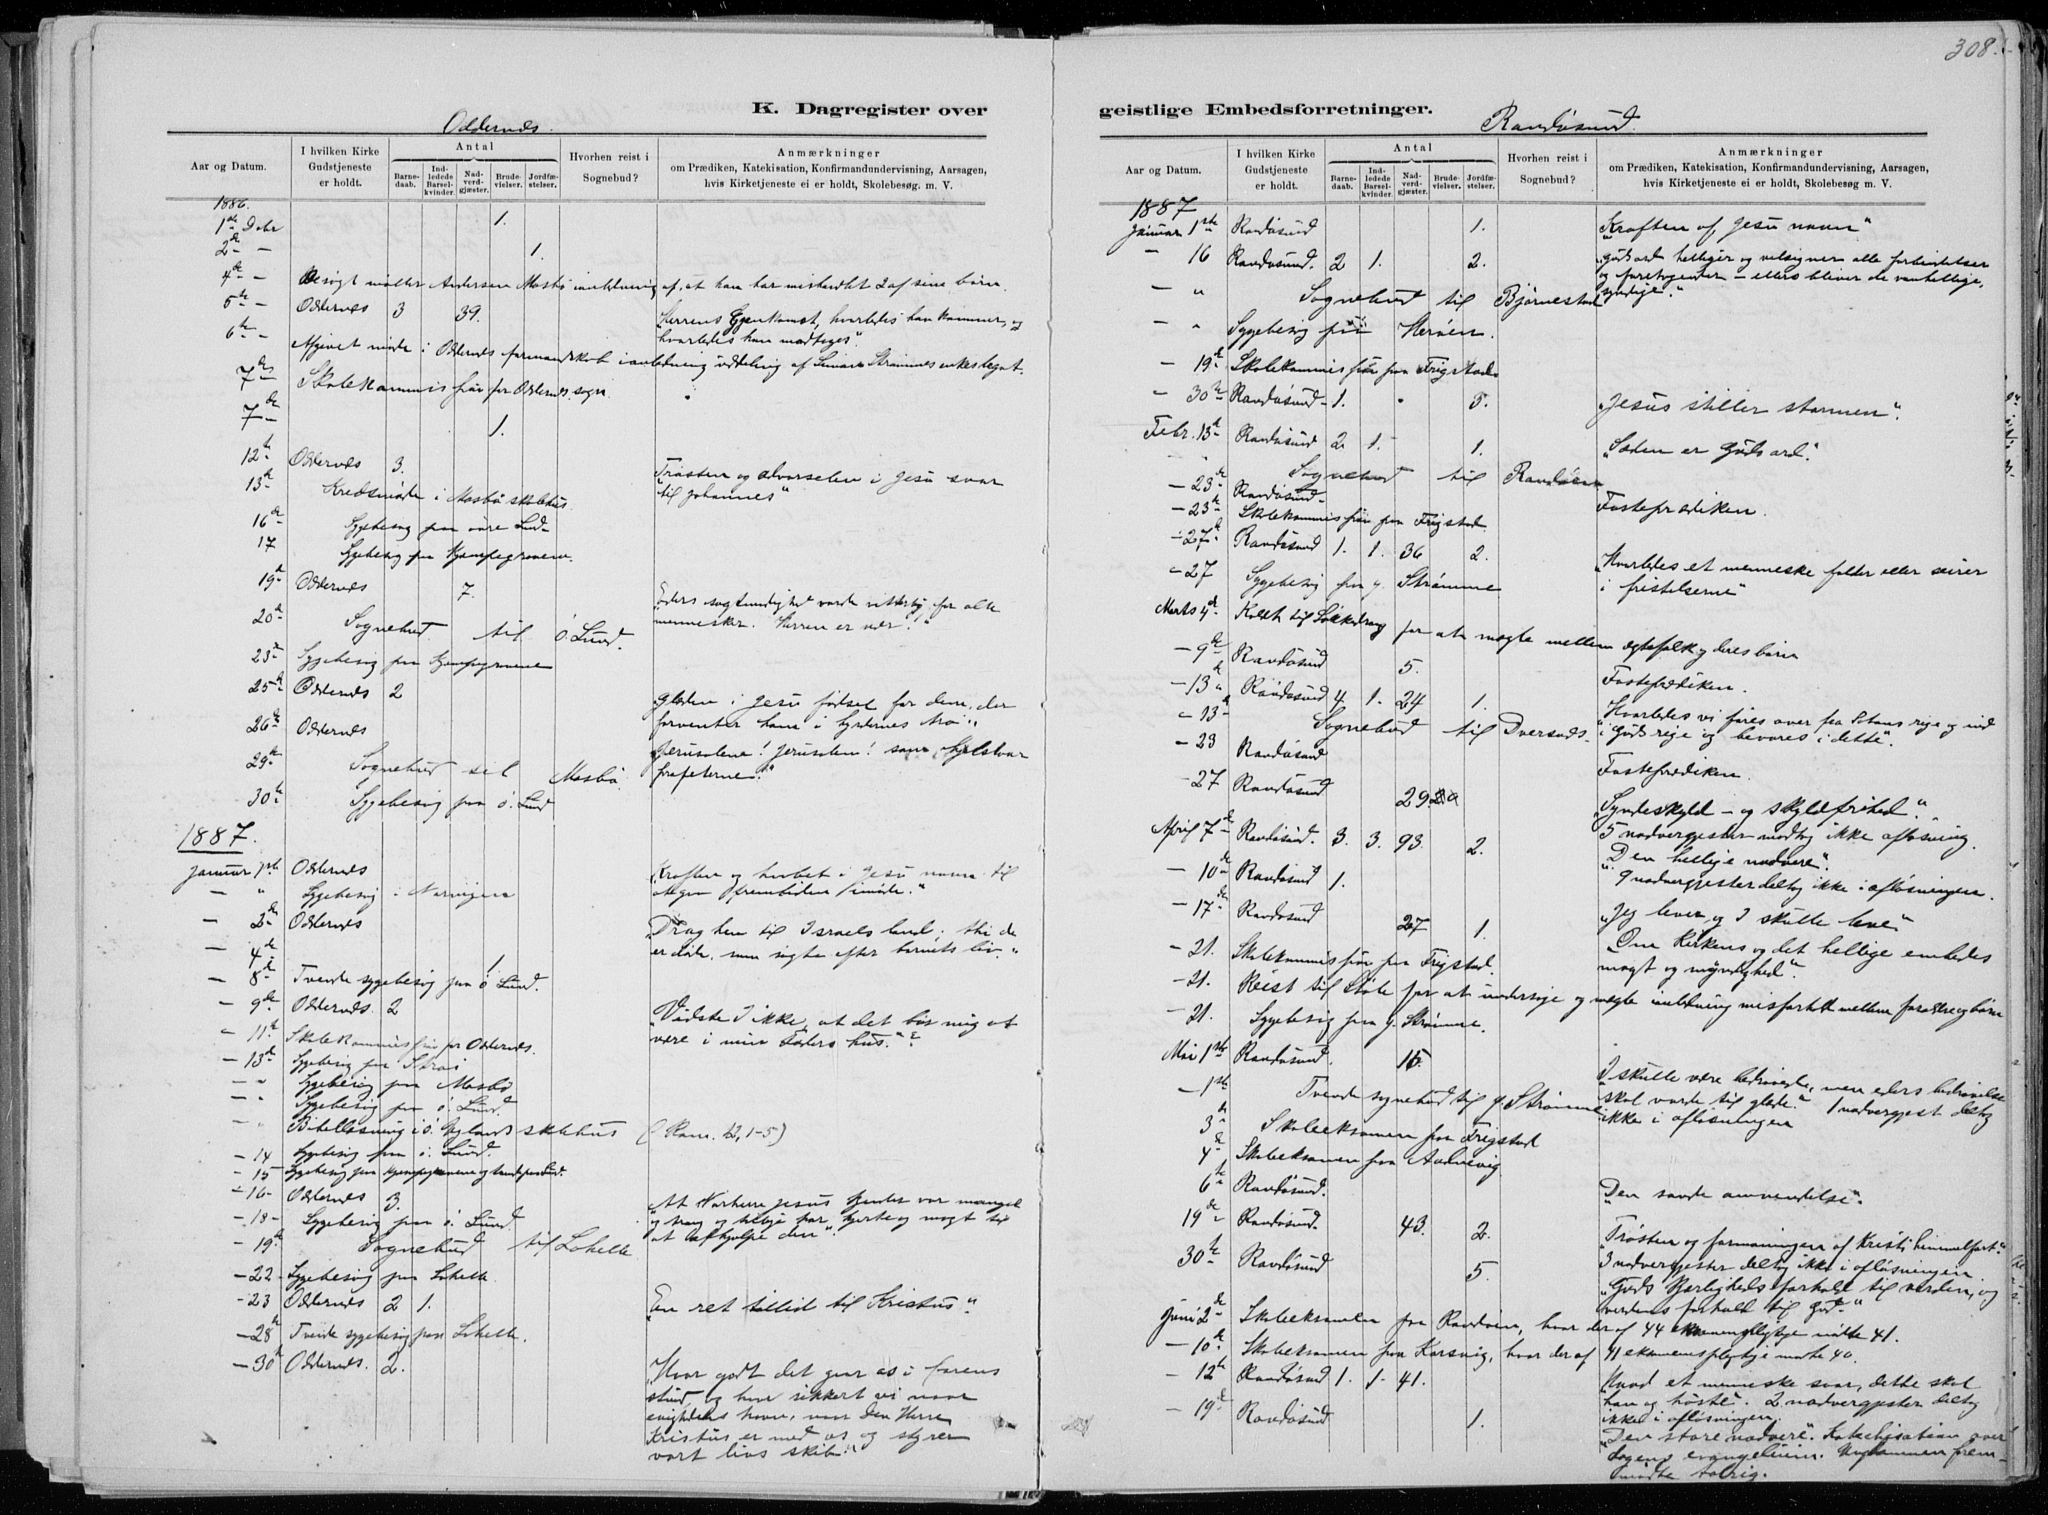 308.
K. Dagregister over
geistlige Embedsforretninger.
Oddernes.
Aar og Datum.
I hvilken Kirke Gudstjeneste er holdt.
Antal
Barnedaab.
Indledede Barselkvinder.
Nadverdgjæster.
Brudevielser.
Jordfæstelser.
Hvorhen reist i Sognebud?
Anmærkninger
om Prædiken, Katekisation, Konfirmandundervisning, Aarsagen,
hvis Kirketjeneste ei er holdt, Skolebesøg m. V.
1886.
1ste Debr 1.
2de - 1.
4de - Besøgt møller Andersen Mosbø i anledning af, at han har mishandlet 2 af sine børn.
5te - Oddernes 3 39. "Herrens Gjenkomst, hvorledes han kommer, og
hvorledes han modtages".
6te - Afgivet møde i Oddernes formandskab i anledning uddeling af Strømmes enkelegat.
7de - Skolekommission for Oddernes sogn.
7de - 1.
12te Oddernes 3. "Trøsten og alvorselen i Jesu svar
til Johannes"
13de Kredsmøde i Mosbø skolehus.
16de Sygebesøg paa øvre Lund
17 Sygebesøg paa Kjempegravene.
19de Oddernes 7. "Eders sagtmodighed vorde vitterlig for alle
mennesker. Herren er nær."
20de Sognebud til ö. Lund.
23de Sygebesøg paa Kjempegravene
25de Oddernes 2 Glæden i Jesu fødsel for dem, der
forventer ham i hyrdernes tro."
26de Oddernes "Jerusalem! Jerusalem! som ihjelslaar
profeterne!"
29de Sognebud til Mosbø.
30te Sygebesøg paa ö. Lund
1887.
Januar 1ste Oddernes "Kraften og haabet i Jesu navn til
at gaa fremtiden imøde."
- " Sygebesøg i Narvigen
- 2den Oddernes "Drag hen til Israels land; thi de
er døde, som sigte efter barnets liv."
- 4de 1.
- 8de Tvende sygebesøg paa ö Lund.
- 9de Oddernes. 2 "Vidste I ikke, at det bør mig at
være i min Faders hus."?
- 11te Skolekommission for Oddernes.
- 13de Sygebesøg paa Strai
- " Sygebesøg paa Mosbø
- " Sygebesøg paa ö. Lund.
- " Bibellæsning i ö. Uglands skolehus (Rom. 12, 1-5)
- 14 Sygebesøg paa ö. Lund.
- 15 Sygebesøg paa Kjempegravene og tvende paa Lund.
- 16 - Oddernes 3. "At Vorherre Jesus kjender vor mangel
og trang og tillige har hjerte og magt til
at afhjelpe den".
- 18 - Sygebesøg paa ö. Lund.
- 19de Sognebud til Lahelle
- 22 - Sygebesøg paa Lahelle.
- 23 Oddernes 2 1. "En ret tillid til Kristus".
- 28de Tvende sygebesøg paa Lahelle.
- 30te Oddernes. 2. "Hvor godt det gaar os i farens
stund, og hvor sikkert vi naar
evighedens havn, naar den Herre
Kristus er med os og styrer
vort livs skib".
Randøsund.
Aar og Datum.
I hvilken Kirke Gudstjeneste er holdt.
Antal
Barnedaab.
Indledede Barselkvinder.
Nadverdgjæster.
Brudevielser.
Jordfæstelser.
Hvorhen reist i Sognebud?
Anmærkninger
om Prædiken, Katekisation, Konfirmandundervisning, Aarsagen,
hvis Kirketjeneste ei er holdt, Skolebesøg m. V.
1887
Januar 1ste Randøsund 1. "Kraften af Jesu navn"
- 16 Randøsund. 2 1. 2. "Guds ord helliger og velsigner alle forbindelser
og foretagender - ellers bliver de vanhellige,
syndige."
- " Sognebud til Bjørnestad
- " Sygebesøg paa Herøen.
- 19de Skolekommission paa Frigstad
- 30te Randøsund - 1. 5. "Jesus stiller stormen".
Febr. 13de Randøsund 2 1. 1. "Sæden er Guds ord."
- 23de Sognebud til Randøen
Randøsund - Fasteprædiken.
- 23de Skolekommission paa Frigstad
- 27de Randøsund 1. 1. 36 2. "Hvorledes et menneske falder eller seirer
i fristelserne"
- 27 Sygebesøg paa y. Strømme
Marts 4de Kaldt til for at mægle mellem ægtefolk og deres børn
- 9de Randøsund 5. Fasteprædiken.
- 13de Randøsund 4 1. 24 1. "Hvorledes vi føres over fra Satans rige og ind
i Guds rige og bevares i dette".
- 13de Sognebud til Dversnes.
- 23 Randøsund Fasteprædiken.
- 27 Randøsund 29 "Syndeskyld - og skyldfrihed".
5 nadvergjester modtog ikke afløsning.
April 7de Randøsund. 3. 3. 93. 2. "Den hellige nadvere".
9 nadvergjester deltog ikke i afløsningen.
- 10de Randøsund 1. "Jeg lever, og I skulle leve"
- 17de Randøsund 27 1. "Om Kirkens og det hellige embedes
magt og myndighed".
- 21. Skolekommission paa Frigstad.
- 21. Reist til Støle for at undersøge og mægle i anledning misforhold mellem forældre og børn
- 21. Sygebesøg paa y. Strømme.
Mai 1ste Randøsund. 15. "I skulle være bedrøvede, men eders bedrøvelse
skal vorde til glæde." 1 nadvergjest deltog
ikke i afløsningen
- 1ste Tvende sognebud til y Strømme
3de Skoleeksamen paa Frigstad
4de Skoleeksamen paa Aadnevig
6te Randøsund. "Den sande omvendelse".
19de Randøsund. 43. 2. "Trøsten og formaningen af Kristi himmelfart".
3 nadvergjester deltog ikke i afløsningen
30te Randøsund 5. "Guds kjærligheds forhold til verden, og
verdens forhold til Gud."
Juni 2de Skoleeksamen paa Randøen, hvor der af 44 eksamenspligtige mødte 41.
- 10de Skoleeksamen paa Korsvig, hvor der af 41 eksamenspligtige mødte 40.
- 12te Randøsund 1. 1. 41. "Hvad et menneske saar, dette skal
han og høste". 2 nadvergjester deltog
ikke i afløsningen.
- 19de Randøsund 1. "Den store nadvere". Katechisation over
dagens evangelium. Ungdommen frem-
mødte talrig.